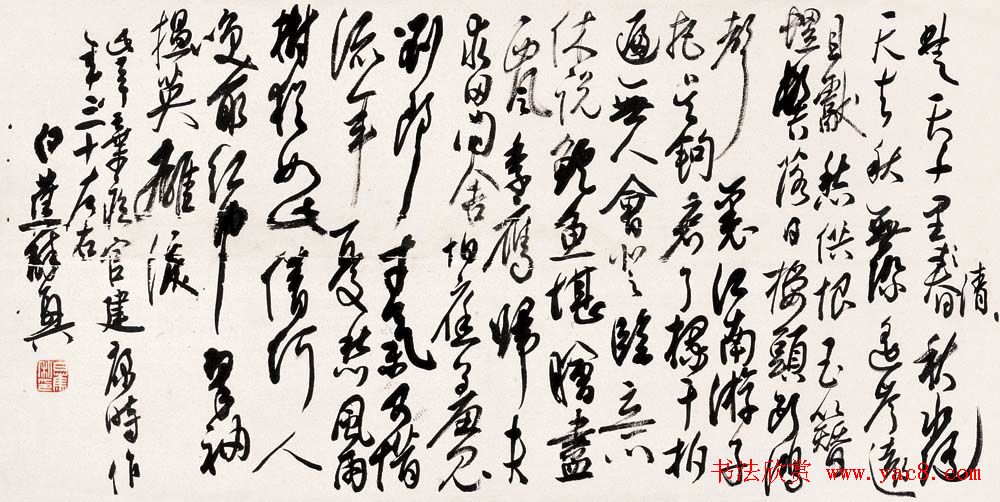 清
楚天千里秋水隨
天去秋無際遙岑遠
目獻愁供恨玉簪
螺髻落日樓頭斷鴻
聲裏江南游子
把吳鉤看了欄干拍
遍無人會登臨意
休說鱸魚堪膾盡
西風季鷹歸未
求田問舍怕應羞見
劉郎才氣可惜
流年憂愁風雨
樹猶如此倩何人
喚取紅巾翠袖
搵英雄淚
此辛棄疾官建康時作
年三十左右
白蕉醉興
书法欣赏 www.yac8.com